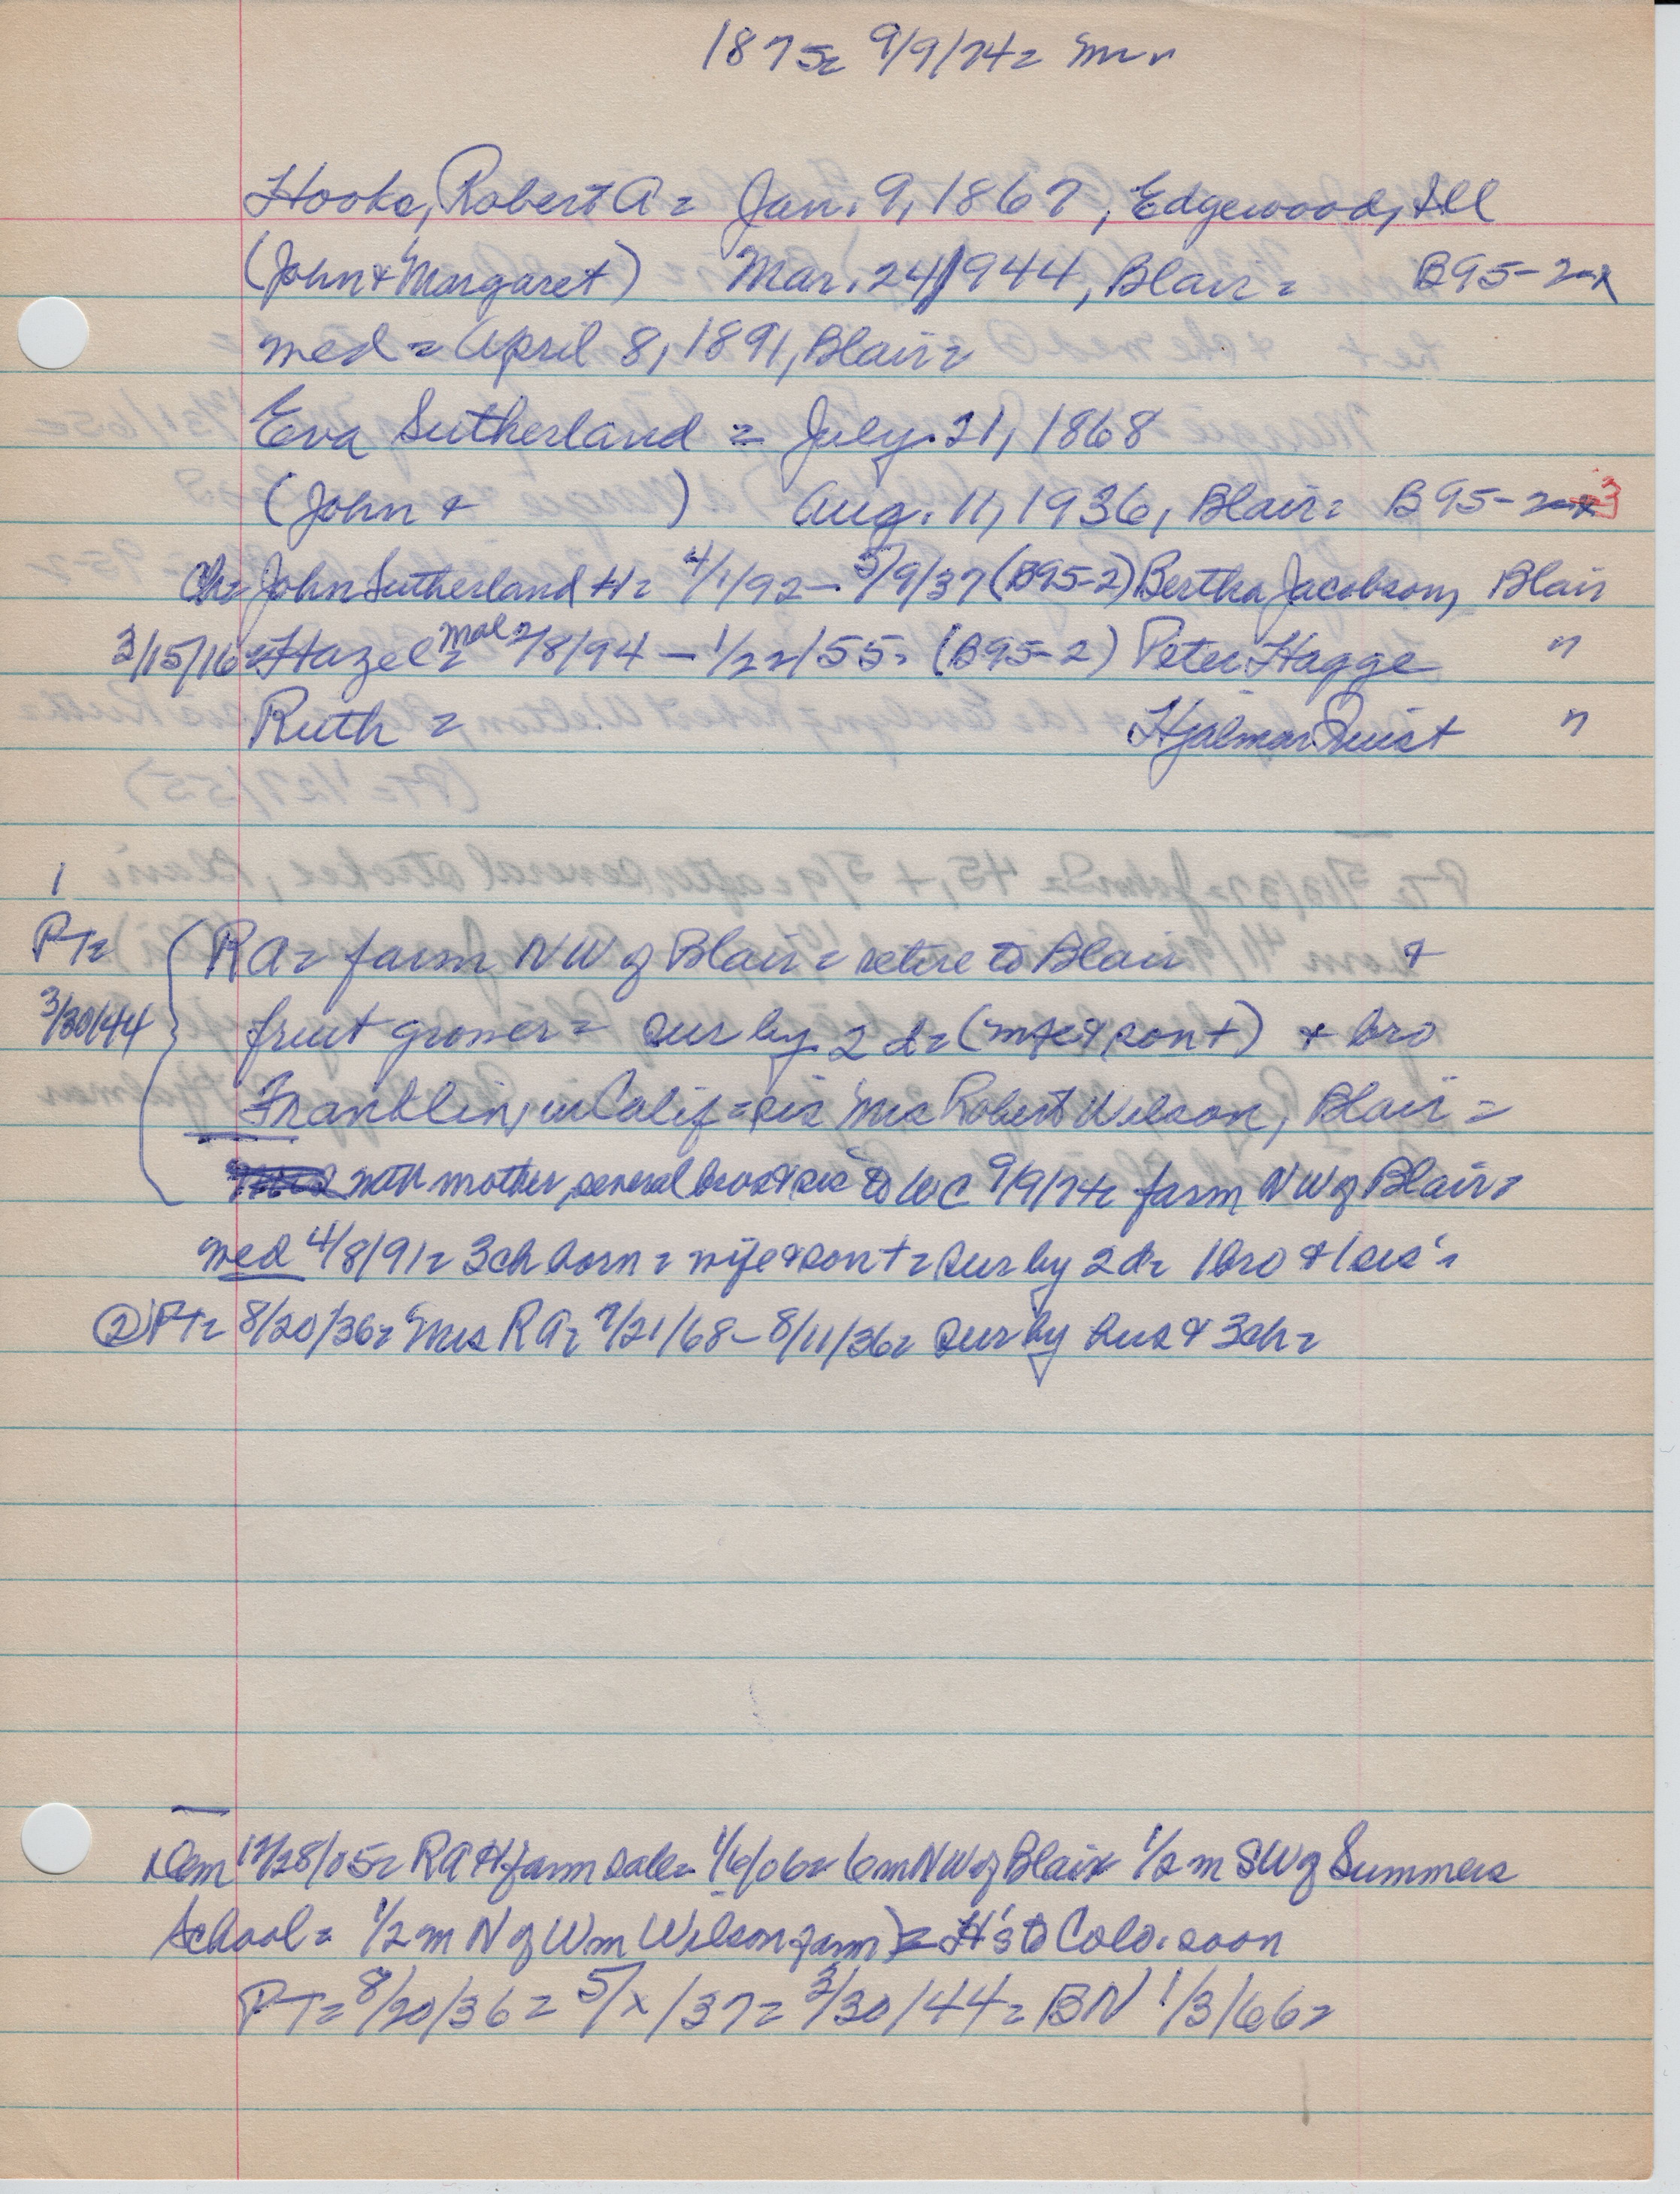 1875= 9/9/74=
Hooke, Robert A = Jan. 9, 1867, Edgewood, Ill
(John & Margaret) Mar. 24, 1944, Blair = B95-2-x
med = April 8, 1891, Blair =
Eva Sutherland = July 21, 1868
(John & ) Aug. 11, 1936, Blair = B95-2-3
Ch= John Sutherland H= 4/1/92 - 5/9/37 (B95-2) Bertha Jacobson, Blair
3/15/16 = Hazel Mae = 2/8/94 - 1/22/55 = (B95-2) Peter Hagge "
Ruth = Hjalmar Quist "
1
PT= RA= farm NW of Blair = retire to Blair &
3/30/44 fruit grower = sur by 2 d= (wife & son +) & bro
Franklin, in Calif = sis Mrs Robert Wilson, Blair =
with mother, several bros & sis to WC 9/9/74= farm NW of Blair =
med 4/8/91= 3 ch born = wife & son + = sur by 2 d= 1 bro & 1 sis =
② PT= 8/20/36= Mrs RA= 7/21/68 - 8/11/36= sur by hus & 3 ch =
Dem 12/28/05= RA H farm sale = 1/6/06= 6 m NW of Blair 1/2 m SW of Summers
School = 1/2 m N of Wm Wilson farm) = H's to Colo. soon
PT= 8/20/36 = 5/x/37 = 3/30/44 = BN 1/3/66 =